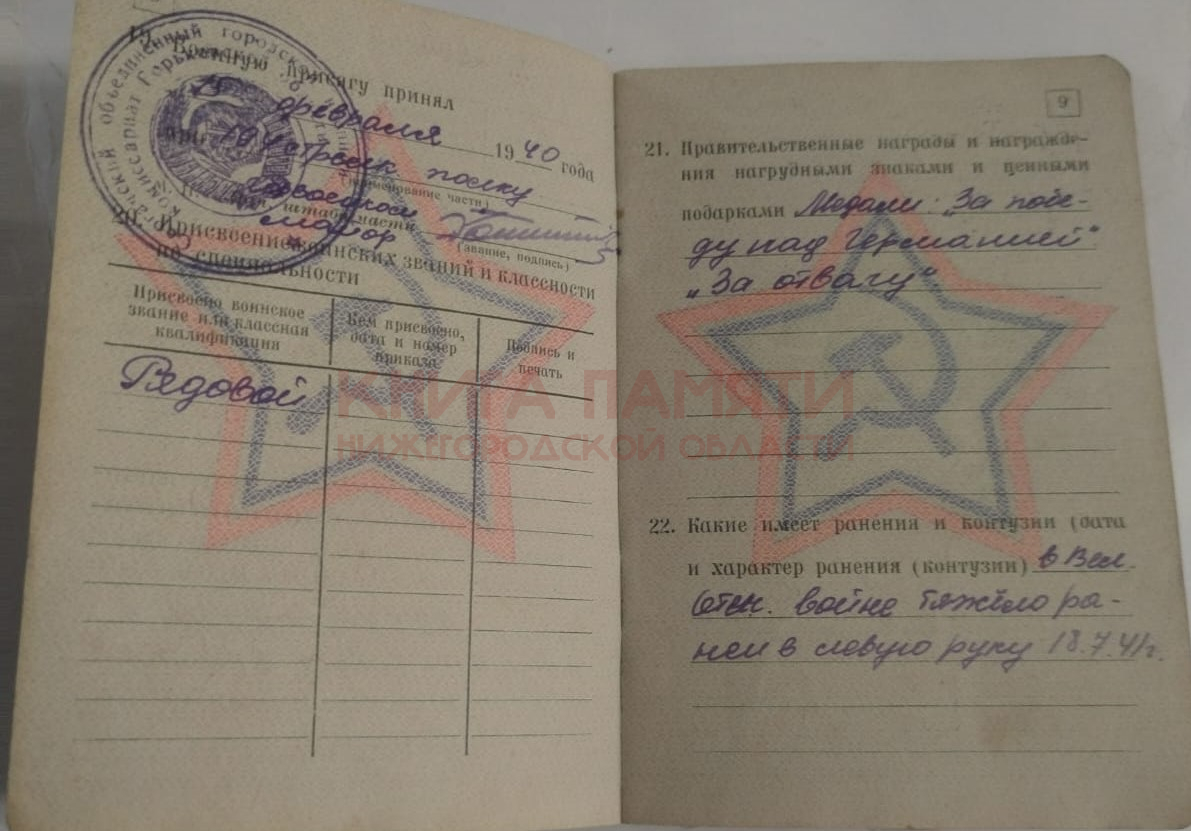 19. Военную присягу принял
февраля 1940 года
при стрелк полку
(наименование части)
При штабе части
майор
(звание, подпись)
20. Присвоение воинских званий и классности
по специальности
Присвоено воинское
звание или классная
квалификация
Кем присвоено,
дата и номер
приказа
Подпись и
печать
Рядовой
9
21. Правительственные награды и награжде-
ния нагрудными знаками и ценными
подарками Медали: „За побе-
ду над Германией"
„За отвагу"
22. Какие имеет ранения и контузии (дата
и характер ранения (контузии) в Вел.
Отеч. войне тяжело ра-
нен в левую руку 18.7.41г.
КНИГА ПАМЯТИ
НИЖЕГОРОДСКОЙ ОБЛАСТИ
объединенный городской
комиссариат Горьковской